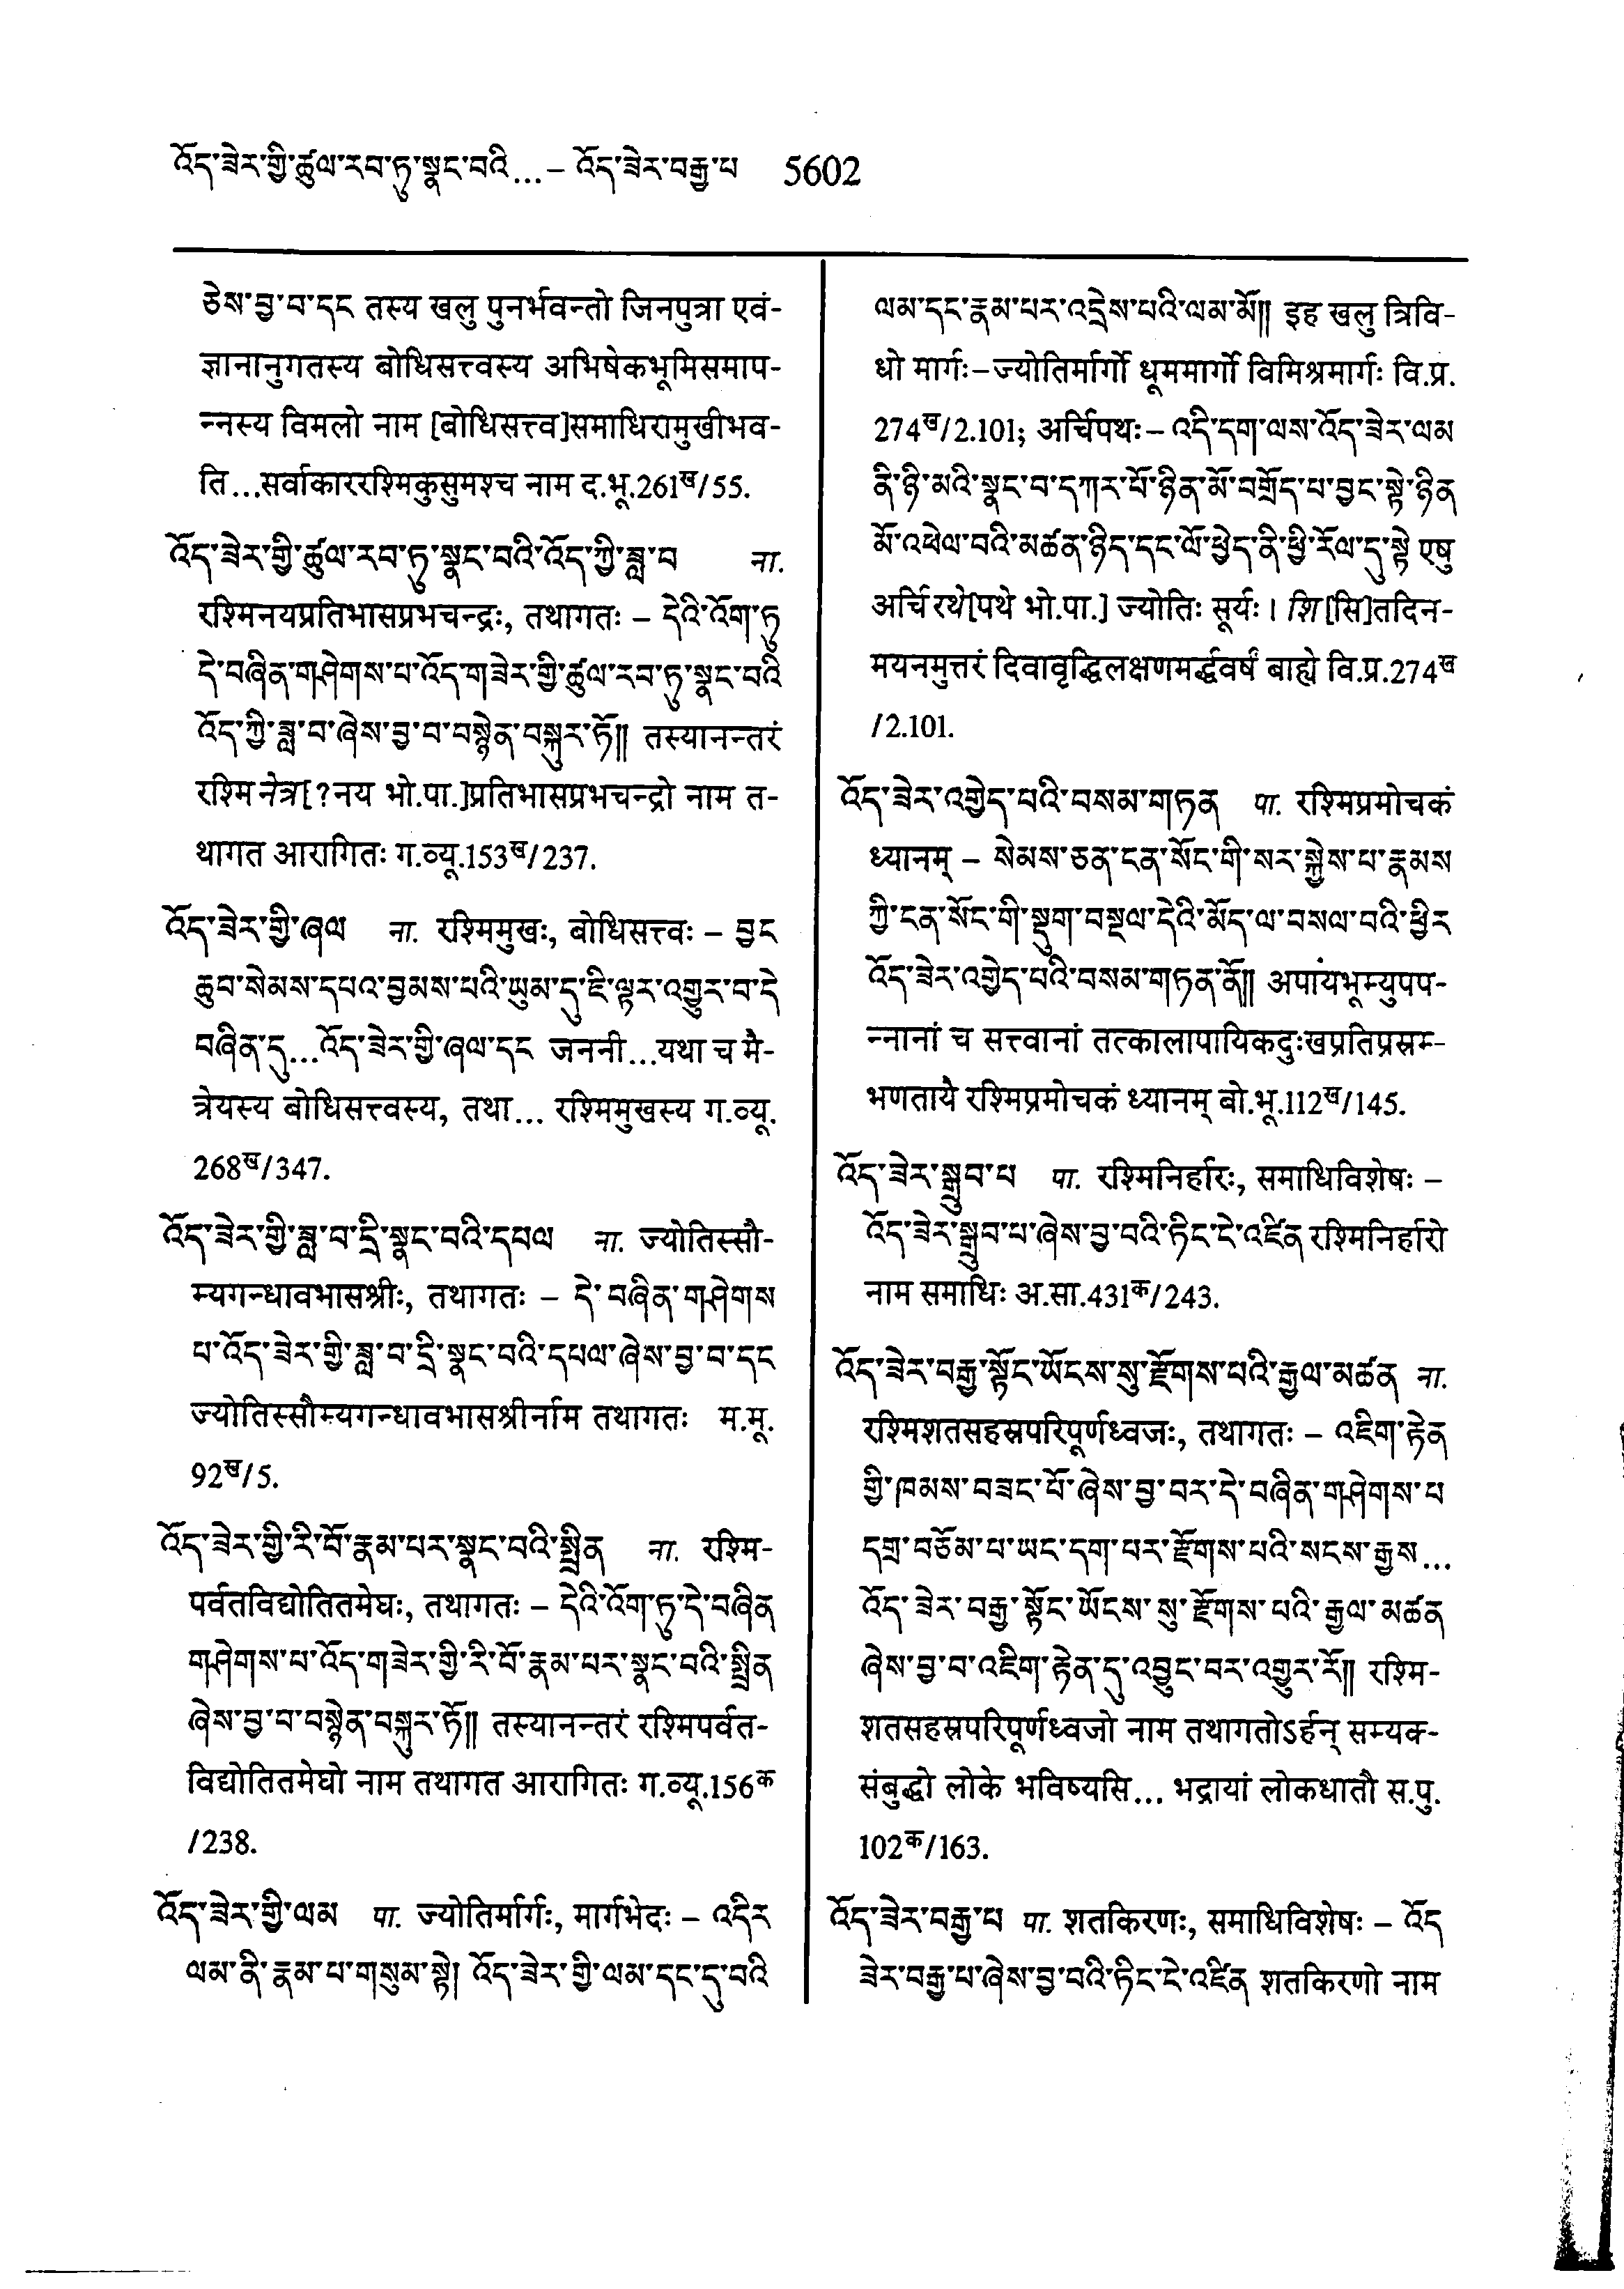 འོད་ཟེར་གྱི་ཚུལ་རབ་ཏུ་སྣང་བའི...– འོད་ཟེར་བརྒྱ་པ 5602
ཅེས་བྱ་བ་དང तस्य खलु पुनर्भवन्तो जिनपुत्रा एवं-
ज्ञानानुगतस्य बोधिसत्त्वस्य अभिषेकभूमिसमाप-
न्नस्य विमलो नाम [बोधिसत्त्व]समाधिरामुखीभव-
ति...सर्वाकाररश्मिकुसुमश्च नाम द.भू.261ख/55.
འོད་ཟེར་གྱི་ཚུལ་རབ་ཏུ་སྣང་བའི་འོད་ཀྱི་ཟླ་བ ना.
रश्मिनयप्रतिभासप्रभचन्द्रः, तथागतः – དེའི་འོག་ཏུ
དེ་བཞིན་གཤེགས་པ་འོད་གཟེར་གྱི་ཚུལ་རབ་ཏུ་སྣང་བའི
འོད་ཀྱི་ཟླ་བ་ཞེས་བྱ་བ་བསྙེན་བསྐུར་ཏོ།། तस्यानन्तरं
रश्मि नेत्र[?नय भो.पा.]प्रतिभासप्रभचन्द्रो नाम त-
थागत आरागितः ग.व्यू.153ख/237.
འོད་ཟེར་གྱི་ཞལ ना. रश्मिमुखः, बोधिसत्त्वः – བྱང
ཆུབ་སེམས་དཔའ་བྱམས་པའི་ཡུམ་དུ་ཇི་ལྟར་འགྱུར་བ་དེ
བཞིན་དུ...འོད་ཟེར་གྱི་ཞལ་དང जननी...यथा च मै-
त्रेयस्य बोधिसत्त्वस्य, तथा... रश्मिमुखस्य ग.व्यू.
268ख/347.
འོད་ཟེར་གྱི་ཟླ་བ་དྲི་སྣང་བའི་དཔལ ना. ज्योतिस्सौ-
म्यगन्धावभासश्रीः, तथागतः – དེ་བཞིན་གཤེགས
པ་འོད་ཟེར་གྱི་ཟླ་བ་དྲི་སྣང་བའི་དཔལ་ཞེས་བྱ་བ་དང
ज्योतिस्सौम्यगन्धावभासश्रीर्नाम तथागतः म.मू.
92ख/5.
འོད་ཟེར་གྱི་རི་བོ་རྣམ་པར་སྣང་བའི་སྤྲིན ना. रश्मि-
पर्वतविद्योतितमेघः, तथागतः – དེའི་འོག་ཏུ་དེ་བཞིན
གཤེགས་པ་འོད་གཟེར་གྱི་རི་བོ་རྣམ་པར་སྣང་བའི་སྤྲིན
ཞེས་བྱ་བ་བསྙེན་བསྐུར་ཏོ།། तस्यानन्तरं रश्मिपर्वत-
विद्योतितमेघो नाम तथागत आरागितः ग.व्यू.156क
/238.
འོད་ཟེར་གྱི་ལམ पा. ज्योतिर्मार्गः, मार्गभेदः – འདིར
ལམ་ནི་རྣམ་པ་གསུམ་སྟེ། འོད་ཟེར་གྱི་ལམ་དང་དུ་བའི
ལམ་དང་རྣམ་པར་འདྲེས་པའི་ལམ་མོ།། इह खलु त्रिवि-
धो मार्गः–ज्योतिर्मार्गो धूममार्गो विमिश्रमार्गः वि.प्र.
274ख/2.101; अर्चिपथः– འདི་དག་ལས་འོད་ཟེར་ལམ
ནི་ཉི་མའི་སྣང་བ་དཀར་པོ་ཉིན་མོ་བགྲོད་པ་བྱང་སྟེ་ཉིན
མོ་འཕེལ་བའི་མཚན་ཉིད་དང་ལོ་ཕྱེད་ནི་ཕྱི་རོལ་དུ་སྟེ एषु
अर्चि रथे[पथे भो.पा.] ज्योतिः सूर्यः। शि[सि]तदिन-
मयनमुत्तरं दिवावृद्धिलक्षणमर्द्धवर्षं बाह्ये वि.प्र.274ख
/2.101.
འོད་ཟེར་འགྱེད་པའི་བསམ་གཏན पा. रश्मिप्रमोचकं
ध्यानम् – སེམས་ཅན་ངན་སོང་གི་སར་སྐྱེས་པ་རྣམས
ཀྱི་ངན་སོང་གི་སྡུག་བསྔལ་དེའི་མོད་ལ་བསལ་བའི་ཕྱིར
འོད་ཟེར་འགྱེད་པའི་བསམ་གཏན་ནོ།། अपायभूम्युपप-
न्नानां च सत्त्वानां तत्कालापायिकदुःखप्रतिप्रस्रम्-
भणतायै रश्मिप्रमोचकं ध्यानम् बो.भू.112ख/145.
འོད་ཟེར་སྒྲུབ་པ पा. रश्मिनिर्हारः, समाधिविशेषः –
འོད་ཟེར་སྒྲུབ་པ་ཞེས་བྱ་བའི་ཏིང་ངེ་འཛིན रश्मिनिर्हारो
नाम समाधिः अ.सा.431क/243.
འོད་ཟེར་བརྒྱ་སྟོང་ཡོངས་སུ་རྫོགས་པའི་རྒྱལ་མཚན ना.
रश्मिशतसहस्रपरिपूर्णध्वजः, तथागतः – འཇིག་རྟེན
གྱི་ཁམས་བཟང་པོ་ཞེས་བྱ་བར་དེ་བཞིན་གཤེགས་པ
དགྲ་བཅོམ་པ་ཡང་དག་པར་རྫོགས་པའི་སངས་རྒྱས...
འོད་ཟེར་བརྒྱ་སྟོང་ཡོངས་སུ་རྫོགས་པའི་རྒྱལ་མཚན
ཞེས་བྱ་བ་འཇིག་རྟེན་དུ་འབྱུང་བར་འགྱུར་རོ།། रश्मि-
शतसहस्रपरिपूर्णध्वजो नाम तथागतोऽर्हन् सम्यक्-
संबुद्धो लोके भविष्यसि... भद्रायां लोकधातौ स.पु.
102क/163.
འོད་ཟེར་བརྒྱ་པ पा. शतकिरणः, समाधिविशेषः – འོད
ཟེར་བརྒྱ་པ་ཞེས་བྱ་བའི་ཏིང་ངེ་འཛིན शतकिरणो नाम